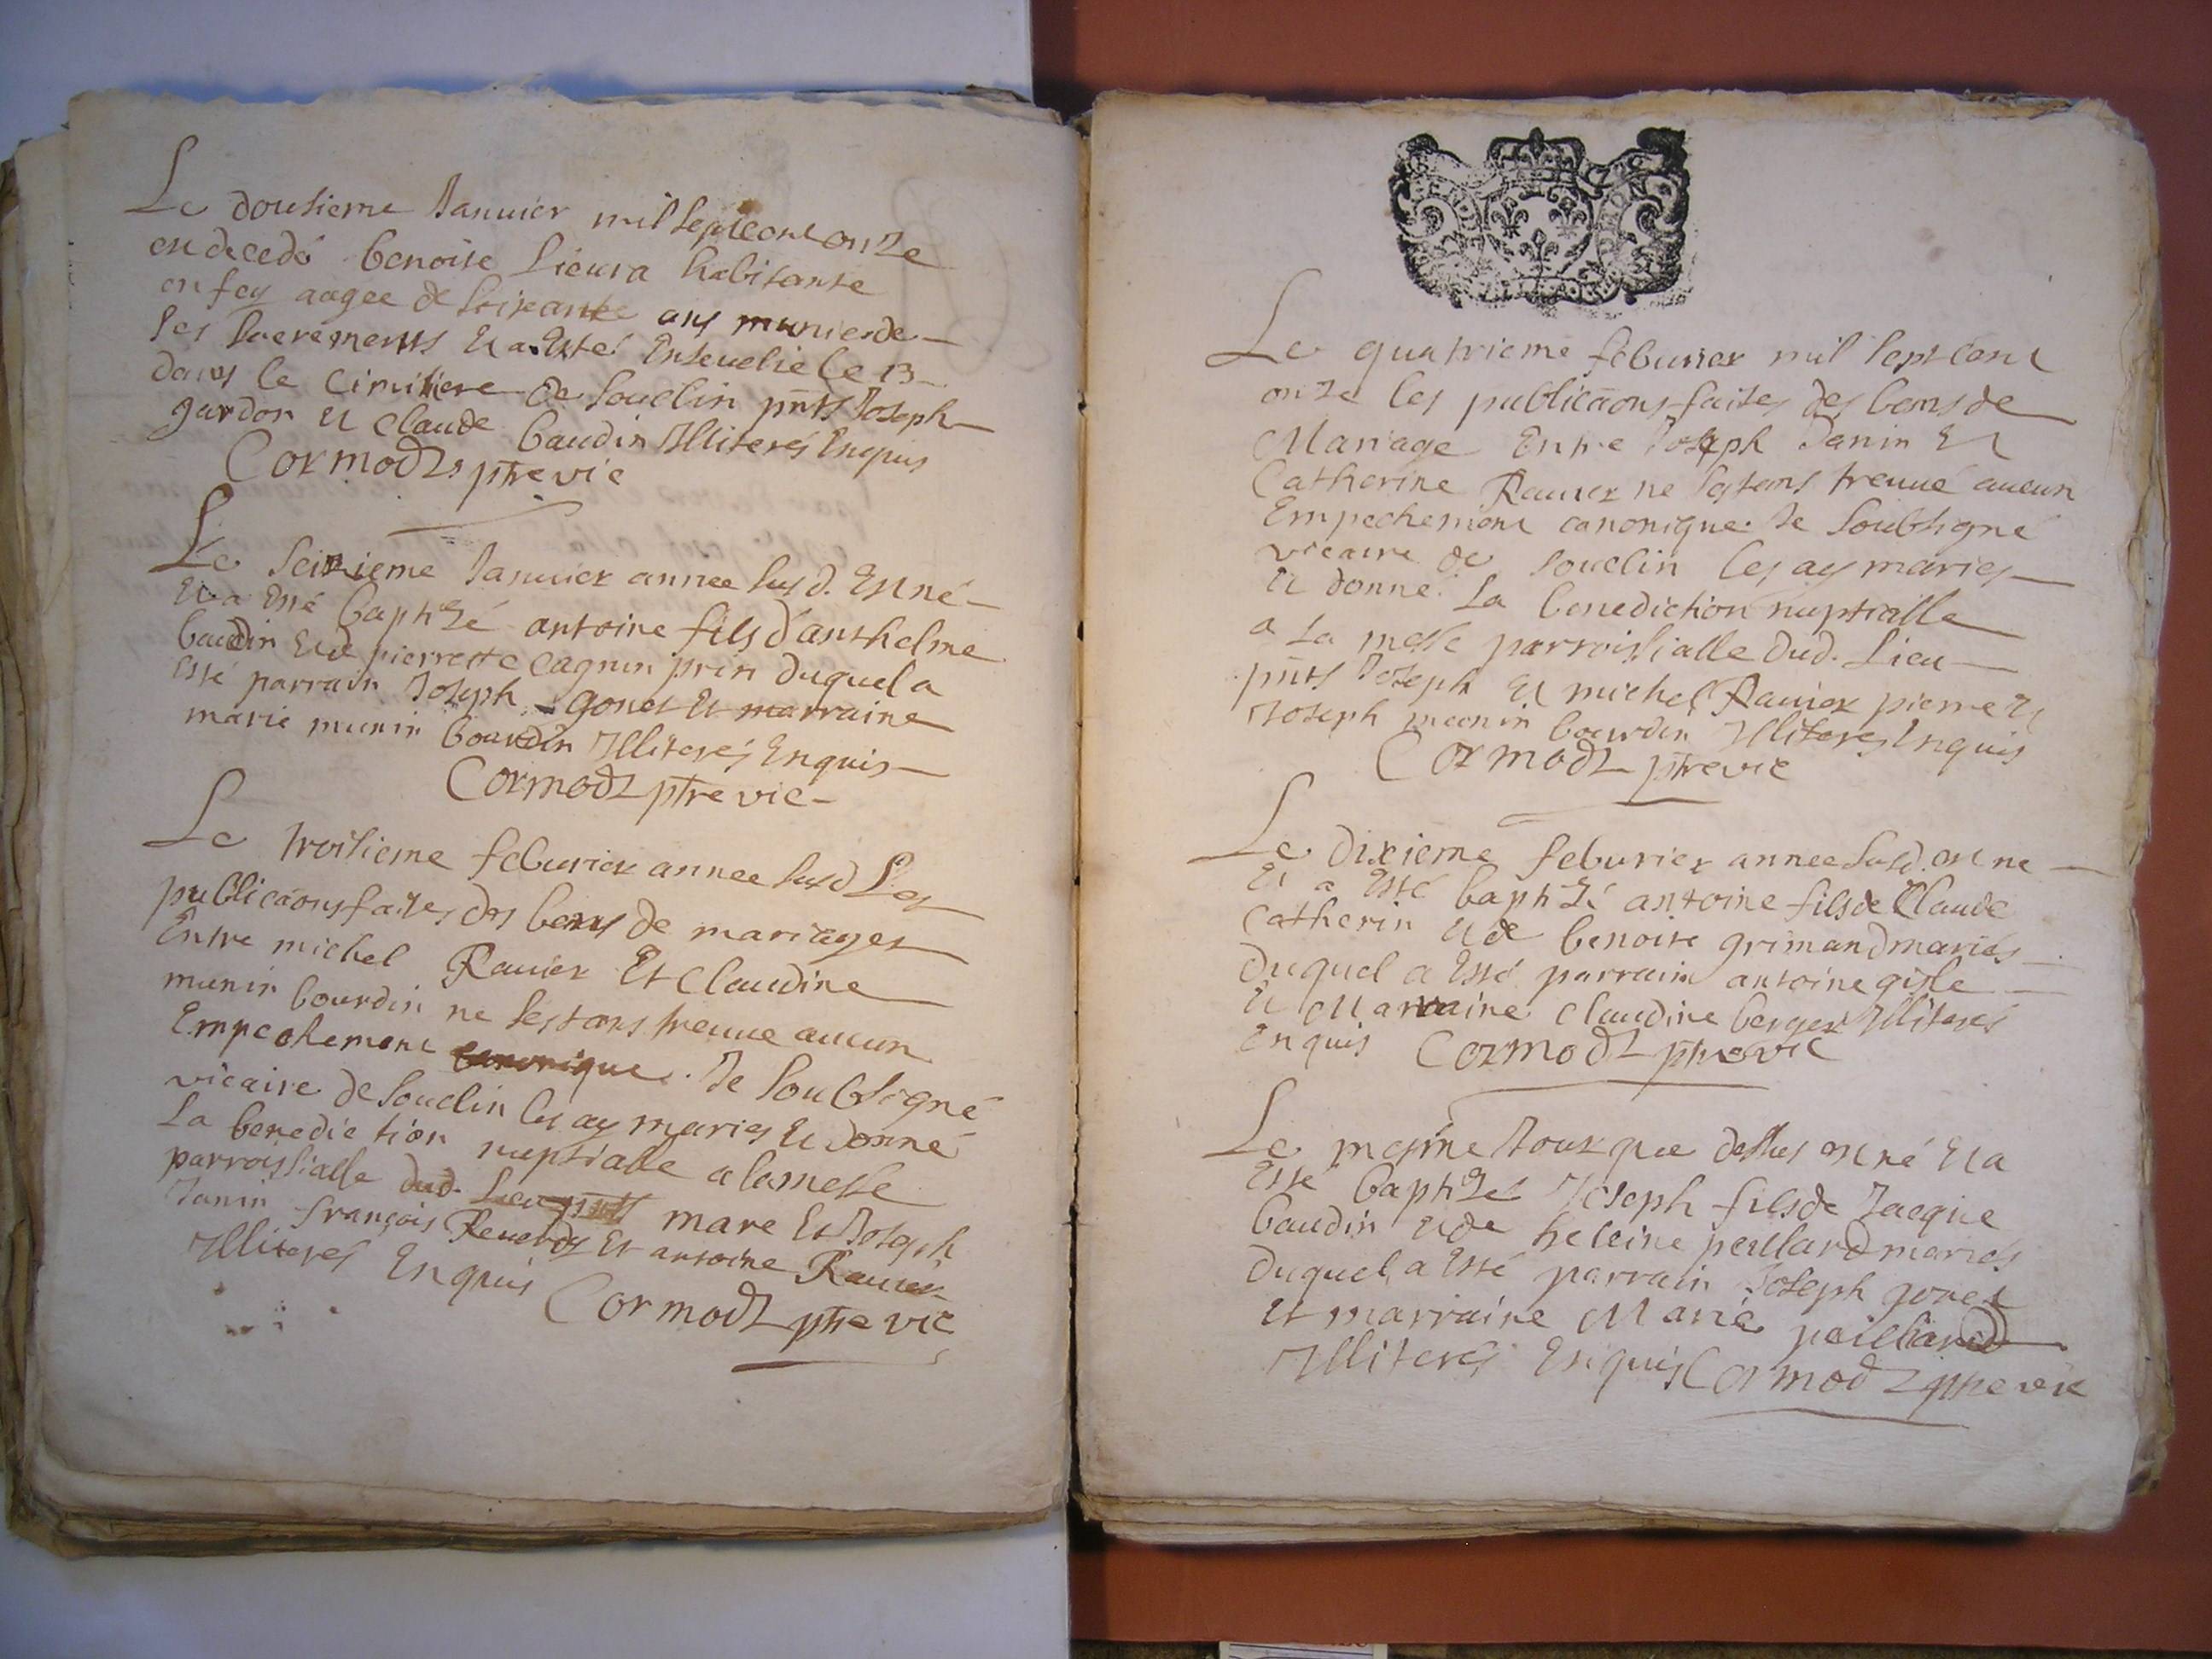 Le dousieme Januier mil sept cent onze
est decedé benoite Lieura habitante
en fey aagee de soixante ans munie de
ses sacrements Et a Esté Enseuelie le 13
dans le cimitiere de souclin pnts Joseph
gardon Et claude baudin Illiterés Enquis
Cormodz ptre vic
Le seizieme Januier annee susd. Est né
Et a Esté baptizé antoine fils d'anthelme
baudin Et de pierrette cagnin prin duquel a
Esté parrain Joseph gonet Et marraine
marie munin bourdin Illiterés Enquis
Cormodz ptre vic
Le troisieme feburier annee susd Les
publicaons faites des bans de mariages
Entre michel Rauier Et Claudine
munin bourdin ne sestans treuue aucun
Empechement canonique. Je soubsigné
vicaire de souclin les ay mariés Et donné
La benediction nuptialle a la messe
parroissialle dud. Lieu pnts marc Et Joseph
Janin françois Reuerdy Et antoine Rauier
Illiterés Enquis Cormodz ptre vic
Le quatrieme feburier mil sept cent
onze les publicaons faites des bans de
Mariage Entre Joseph Janin Et
Catherine Rauier ne sestans treuué aucun
Empechement canonique. Je soubsigné
vicaire de souclin les ay mariés
Et donné La benediction nuptialle
a La messe parroissialle dud. Lieu
pnts Joseph Et michel Rauier pierre Et
Joseph munin bourdin Illiterés Enquis
Cormodz ptre vic
Le dixieme feburier annee susd. est ne
Et a Esté baptizé antoine fils de Claude
Catherin Et de benoite grimand mariés
duquel a Esté parrain antoine gisle
Et Marraine claudine berger Illiterés
Enquis Cormodz ptre vic
Le mesme Jour que dessus est né Et a
Esté baptizé Joseph fils de Jacque
baudin Et de heleine peillard mariés
duquel a Esté parrain Joseph gonet
Et marraine Marie peilliard
Illiterés Enquis Cormodz ptre vic